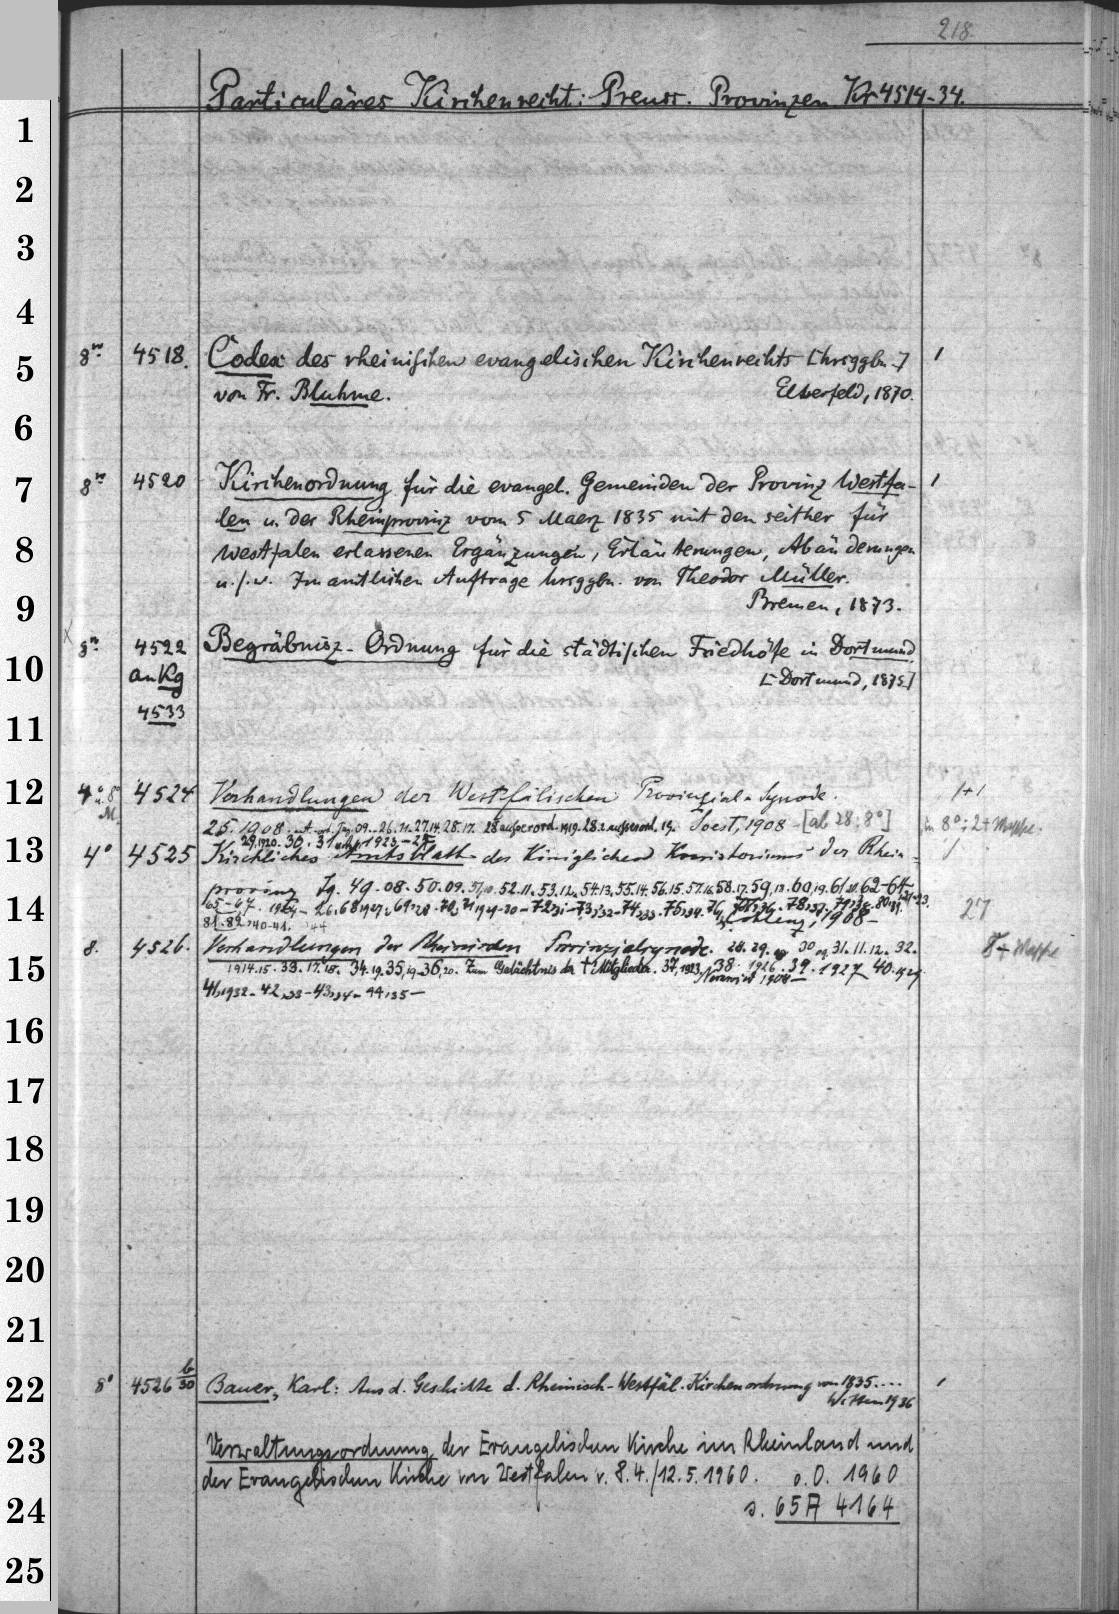 218.
Particuläres Kirchenrecht: Preuss. Provinzen Kr 4514-34.
1
2
3
4
5
8vo 4518. Codex des rheinischen evangelischen Kirchenrechts [hrsggbn.] 1
von Fr. Bluhme. Elberfeld, 1870.
6
7
8vo 4520 Kirchenordnung für die evangel. Gemeinden der Provinz Westfa- 1
len u. der Rheinprovinz vom 5 Maerz 1835 mit den seither für
8
Westfalen erlassenen Ergänzungen, Erläuterungen, Abänderungen
u.s.w. Im amtlichen Auftrage hrsggbn. von Theodor Müller.
9
Bremen, 1873.
8vo 4522 Begräbnisz-Ordnung für die städtischen Friedhöfe in Dortmund
10
an Kg [Dortmund, 1875]
4533
11
12
4° u. 8° M. 4524 Verhandlungen der Westfälischen Provinzial-Synode. 1+1
25. 1908. 28 ausserord. 1919. Soest, 1908 - [ab 28: 8°] in 8°: 2+Mappe.
29,1920. 30. 31 1925-27
13
4° 4525 Kirchliches Amtsblatt des Königlichen Konsistoriums der Rhein- 1
provinz Jg. 49.08. 50.09. 51,10. 52.11. 53.12. 54.13. 55.14. 56.15. 57.16. 58.17. 59,18. 60,19. 61,20. 62-64
14
65-67. 1924-26. 68,1927. 69,28. 70, 71 1929-30 - 72,31-73,32-74,33. 75,34. 76, 77,36. 78,37. 79,38. 80,39. 27
81.82,40-41. 44 Coblenz, 1908-
8. 4526. Verhandlungen der Rheinischen Provinzialsynode. 28. 29. 30 31. 11.12. 32. 8+Mappe
15
1914.15. 33.17.18. 34.19. 35,19. 36,20. Zum Gedächtnis der † Mitglieder. 37,1923. 38. 1926. 39. 1927 40.1929
Neuwied 1908-
41,1932-42,33-43,34-44,35-
16
17
18
19
20
21
22
8° 4526 b/30 Bauer, Karl: Aus d. Geschichte d. Rheinisch-Westfäl. Kirchenordnung von 1835.... 1
Witten 1936
23
Verwaltungsordnung der Evangelischen Kirche im Rheinland und
der Evangelischen Kirche von Westfalen v. 8.4./12.5.1960. o.O. 1960
24
s. 65 A 4164
25